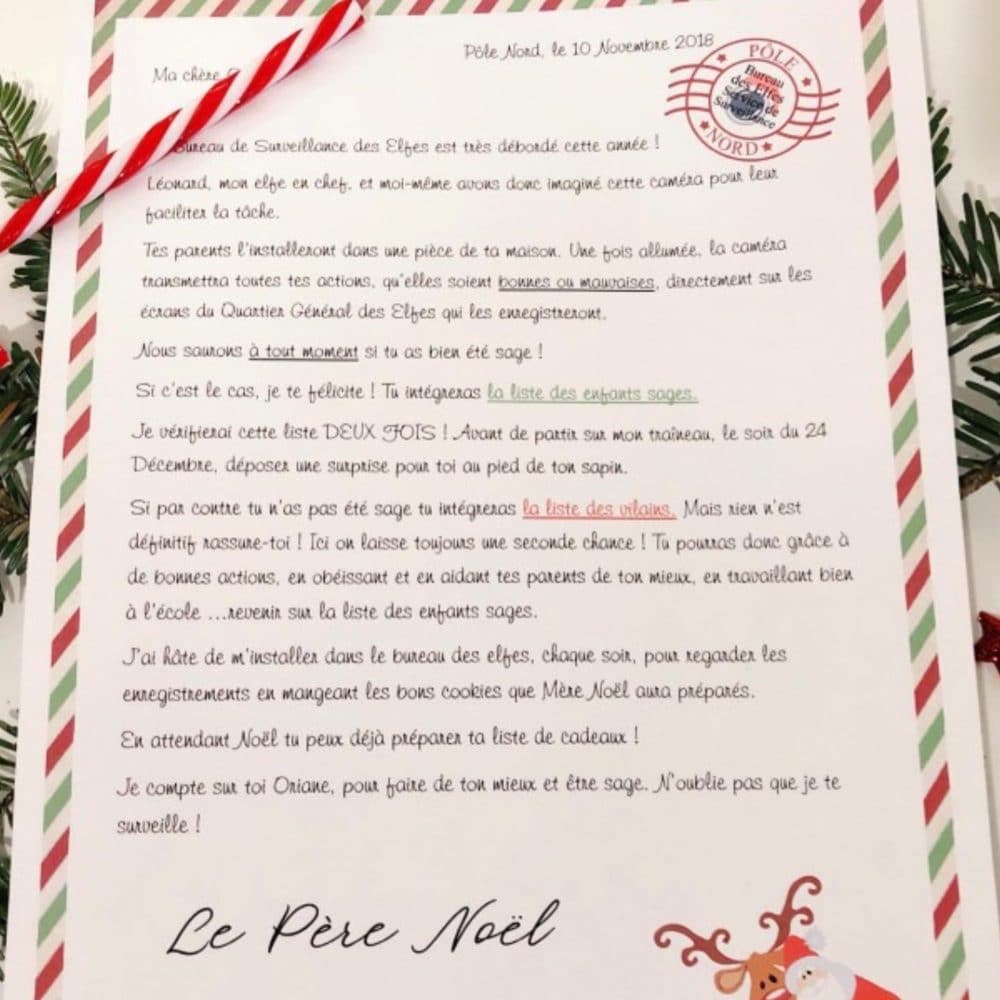 Pôle Nord, le 10 Novembre 2018
PÔLE
Bureau
des Elfes
Service de
Surveillance
NORD
Ma chère
Bureau de Surveillance des Elfes est très débordé cette année !
Léonard, mon elfe en chef, et moi-même avons donc imaginé cette caméra pour leur
faciliter la tâche.
Tes parents l'installeront dans une pièce de ta maison. Une fois allumée, la caméra
transmettra toutes tes actions, qu'elles soient bonnes ou mauvaises, directement sur les
écrans du Quartier Général des Elfes qui les enregistreront.
Nous saurons à tout moment si tu as bien été sage !
Si c'est le cas, je te félicite ! Tu intégreras la liste des enfants sages.
Je vérifierai cette liste DEUX FOIS ! Avant de partir sur mon traîneau, le soir du 24
Décembre, déposer une surprise pour toi au pied de ton sapin.
Si par contre tu n'as pas été sage tu intégreras la liste des vilains. Mais rien n'est
définitif rassure-toi ! Ici on laisse toujours une seconde chance ! Tu pourras donc grâce à
de bonnes actions, en obéissant et en aidant tes parents de ton mieux, en travaillant bien
à l'école ...revenir sur la liste des enfants sages.
J'ai hâte de m'installer dans le bureau des elfes, chaque soir, pour regarder les
enregistrements en mangeant les bons cookies que Mère Noël aura préparés.
En attendant Noël tu peux déjà préparer ta liste de cadeaux !
Je compte sur toi Oriane, pour faire de ton mieux et être sage. N'oublie pas que je te
surveille !
Le Père Noël